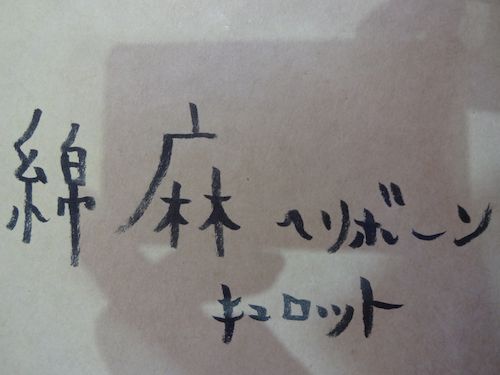 綿麻ヘリボーン
キュロット